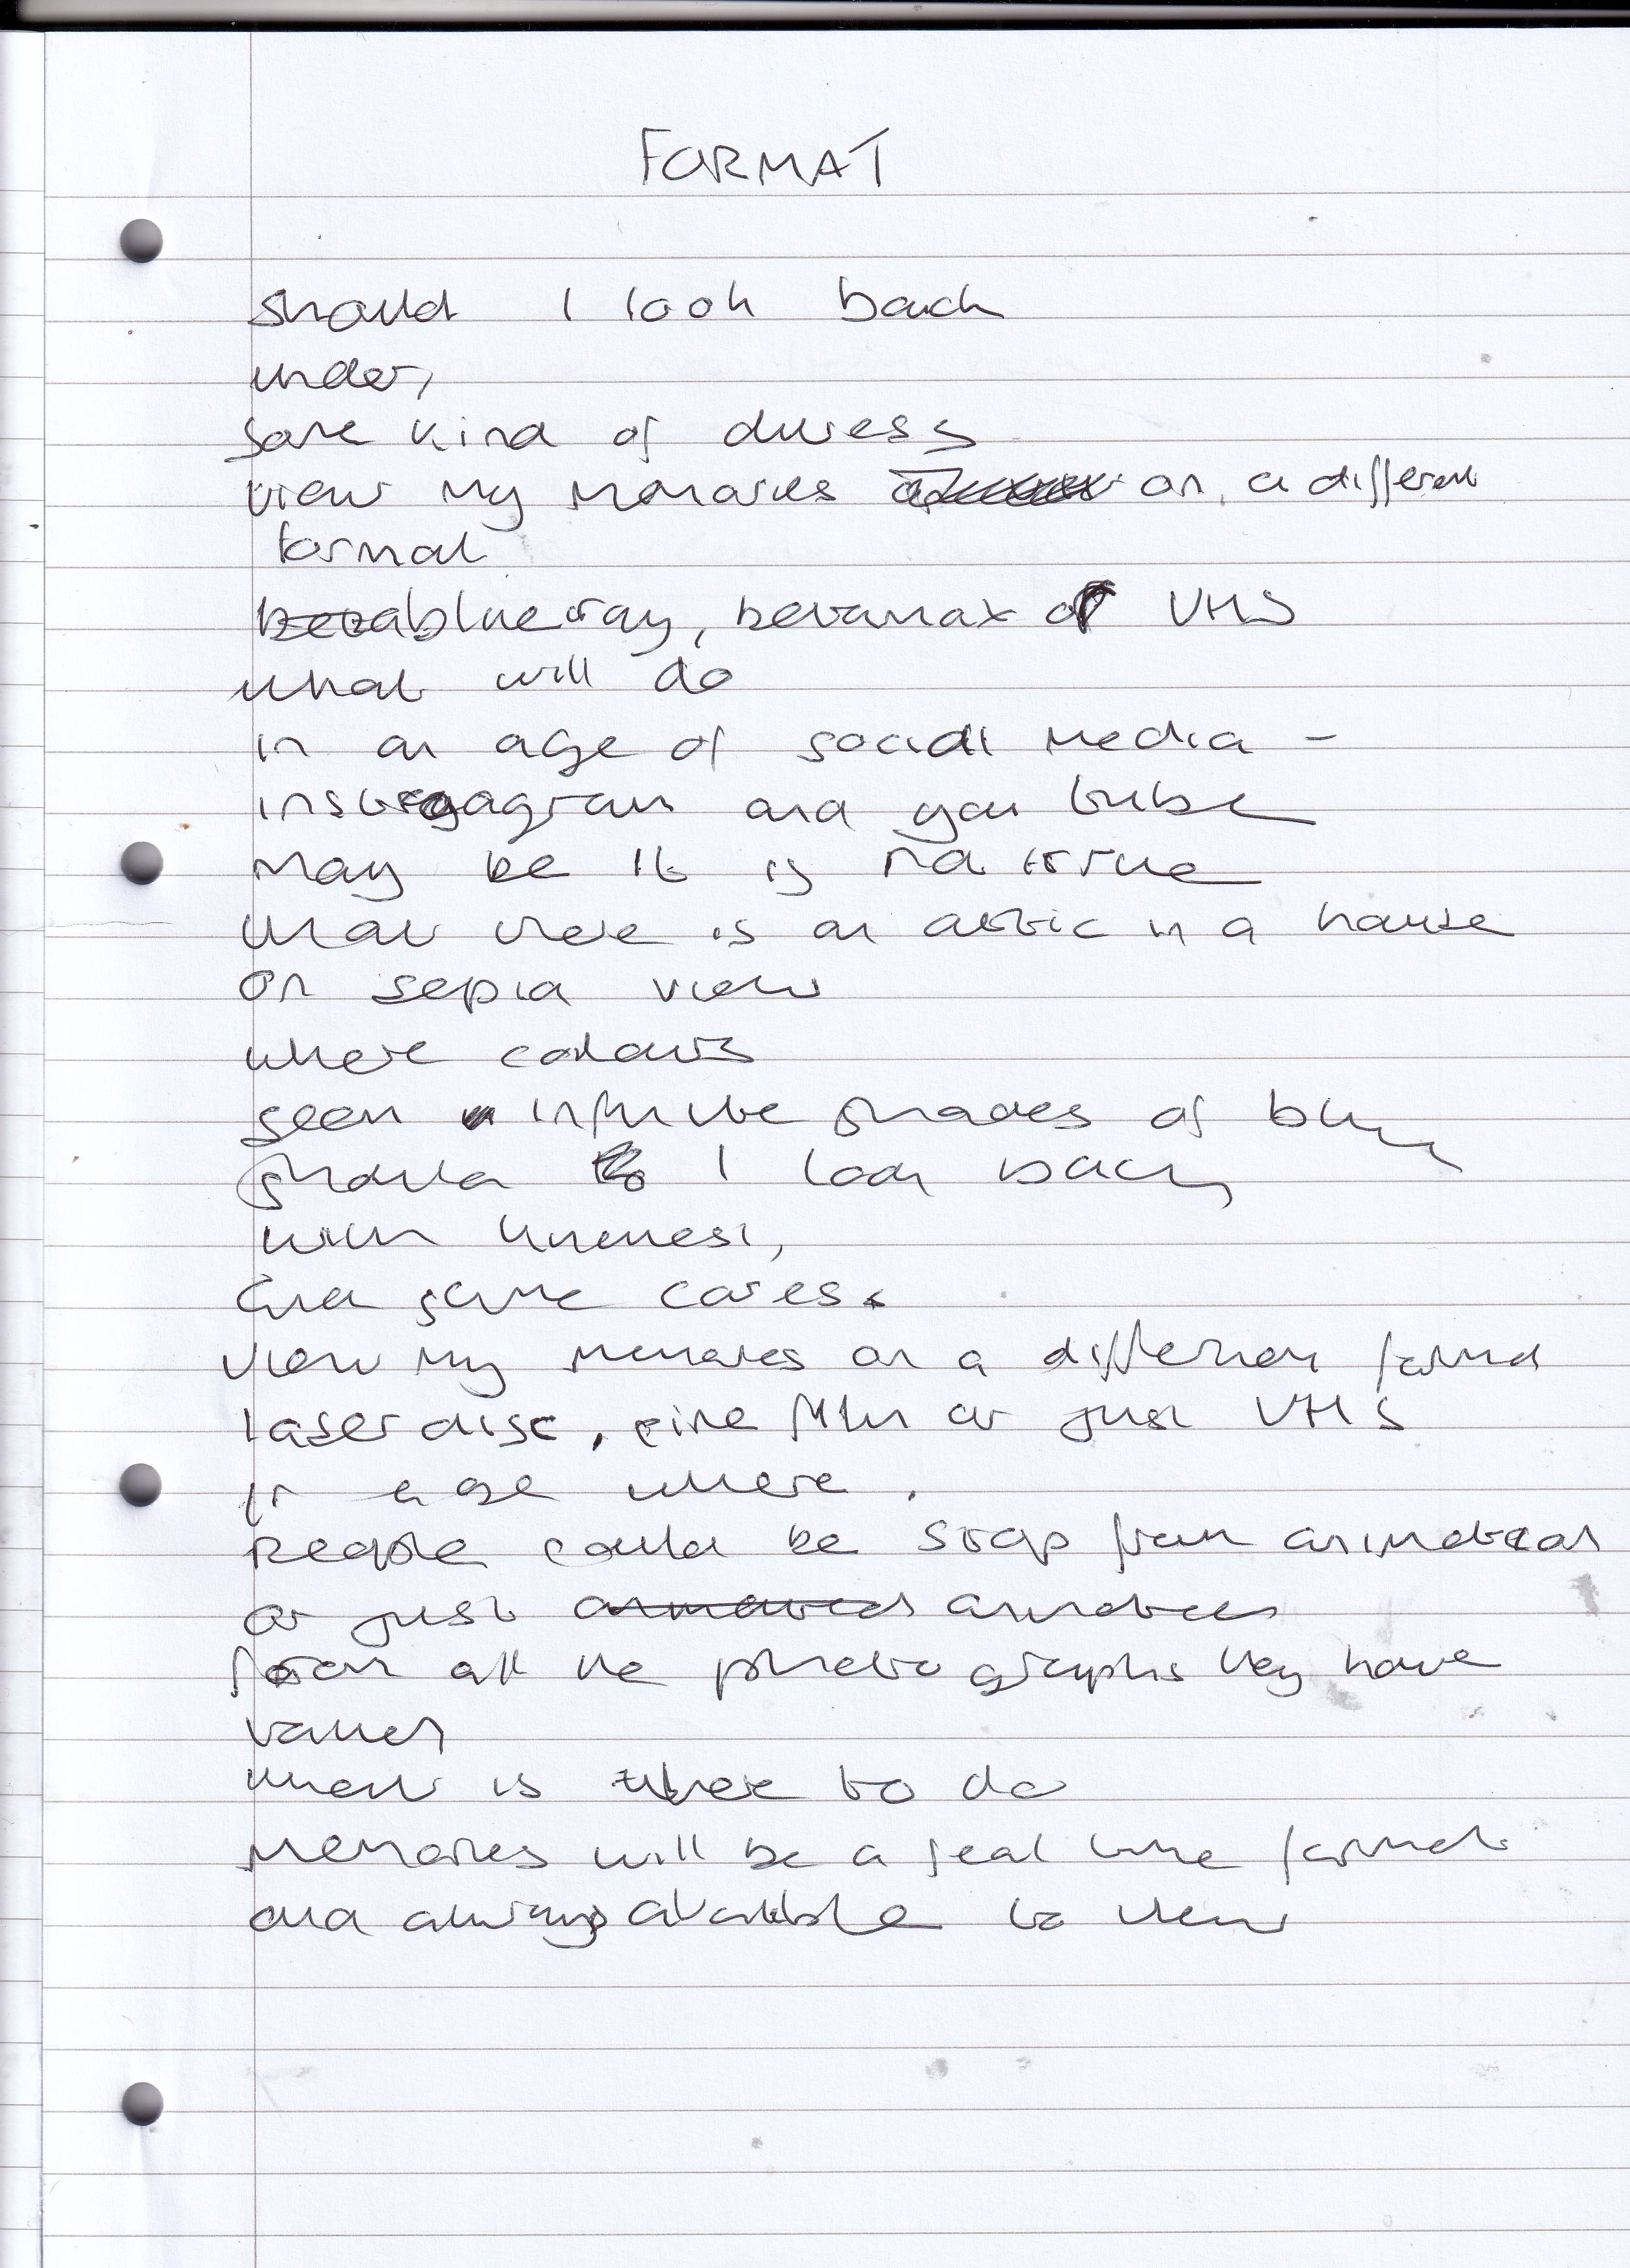 FORMAT
should I look back
under,
some kind of duress
view my memories on a different
format
blue ray, betamax or VHS
what will do
in an age of social media -
instagagram and you tube
may be it is not true
that there is an attic in a house
on sepia view
where colours
seen infinite shades of blue
should I look back
with kindness,
and some caress
view my memories on a different format
laser disc, cine film or just VHS
in age where
people could be stop from animation
or just
from all the photo graphs they have
taken
what is there to do
memories will be a real time format
and always available to view